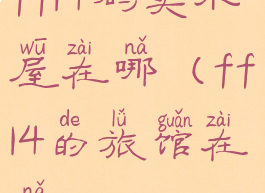 的
wū zài nǎ
屋在哪（ff
de lǚ guǎn zài
14的旅馆在
nǎ